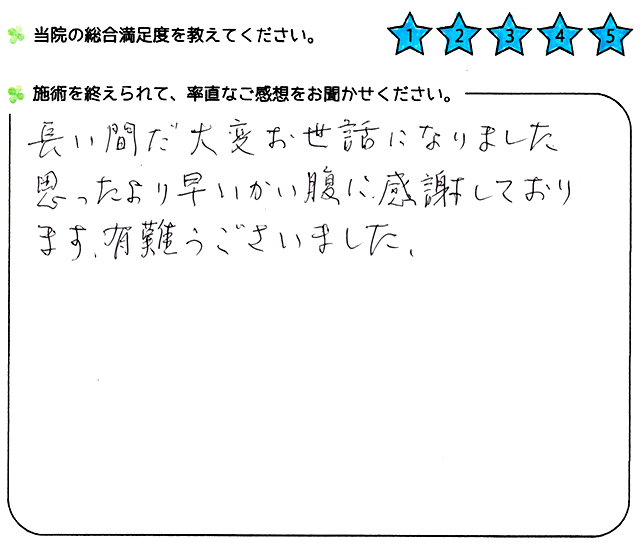 当院の総合満足度を教えてください。
1 2 3 4 5
施術を終えられて、率直なご感想をお聞かせください。
長い間だ大変お世話になりました
思ったより早いかい腹に感謝しており
ます、有難うございました、